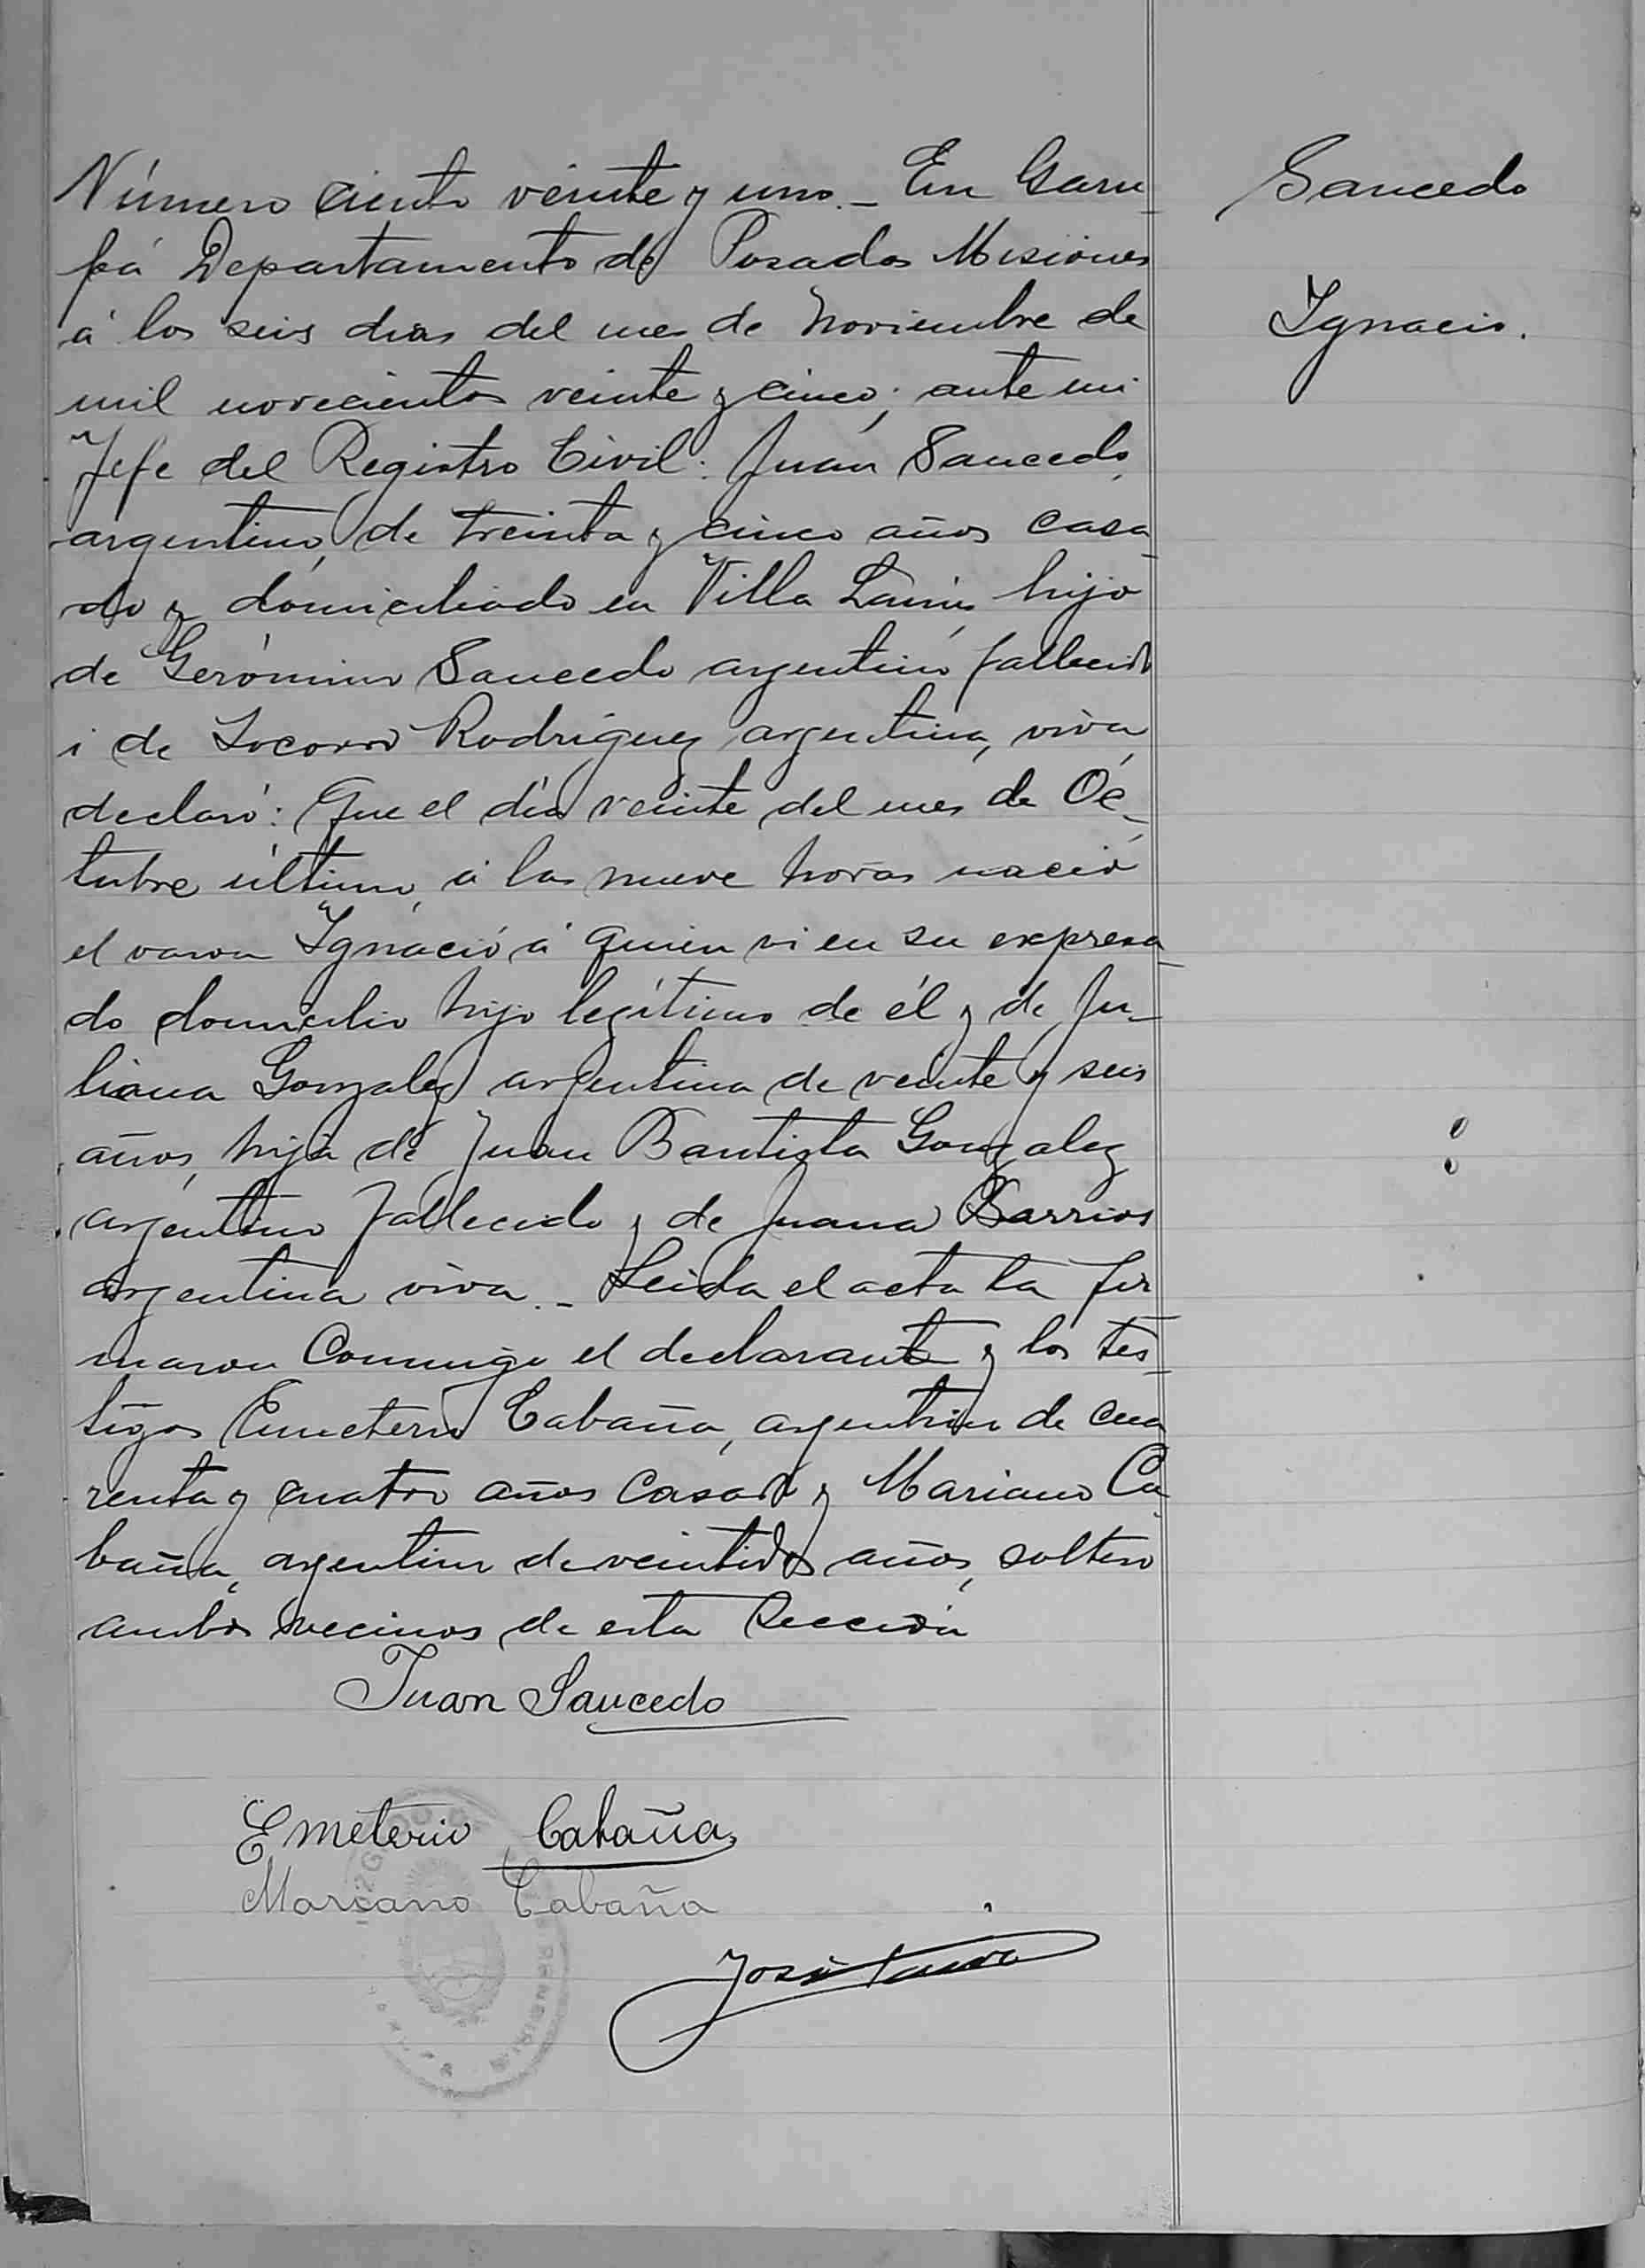 Saucedo
Ignacio.
Número ciento veinte y uno._ En Garu-
pá Departamento de Posadas Misiones
á los seis dias del mes de Noviembre de
mil novecientos veinte y cinco; ante mi
Jefe del Registro Civil: Juan Saucedo,
argentino, de treinta y cinco años casa-
do y domiciliado en Villa Lanús, hijo
de Gerónimo Saucedo argentino fallecido
i de Socorro Rodriguez argentina, viva,
declaró: Que el dia veinte del mes de Oc-
tubre último, á las nueve horas nació
el varon Ignacio á quien vi en su expresa-
do domicilio hijo legítimo de él y de Ju-
liana Gonzalez argentina de veinte y seis
años, hija de Juan Bautista Gonzalez
argentino fallecido y de Juana Barrios
argentina viva._ Leida el acta la fir-
maron conmigo el declarante y los tes-
tigos Emeterio Cabaña, argentino de cua-
renta y cuatro años casado y Mariano Ca-
baña, argentino de veintidos años, soltero
ambos vecinos de esta Sección
Juan Saucedo
Emeterio Cabaña
Marsano Cabaña
José